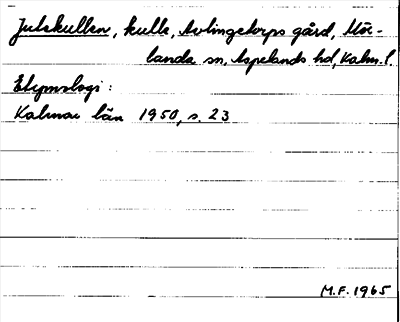 Julskullen, kulle, Avlingetorps gård, Mör-
landa sn, Aspelands hd, Kalm. l.
Etymologi:
Kalmar län 1950, s. 23
M.F. 1965